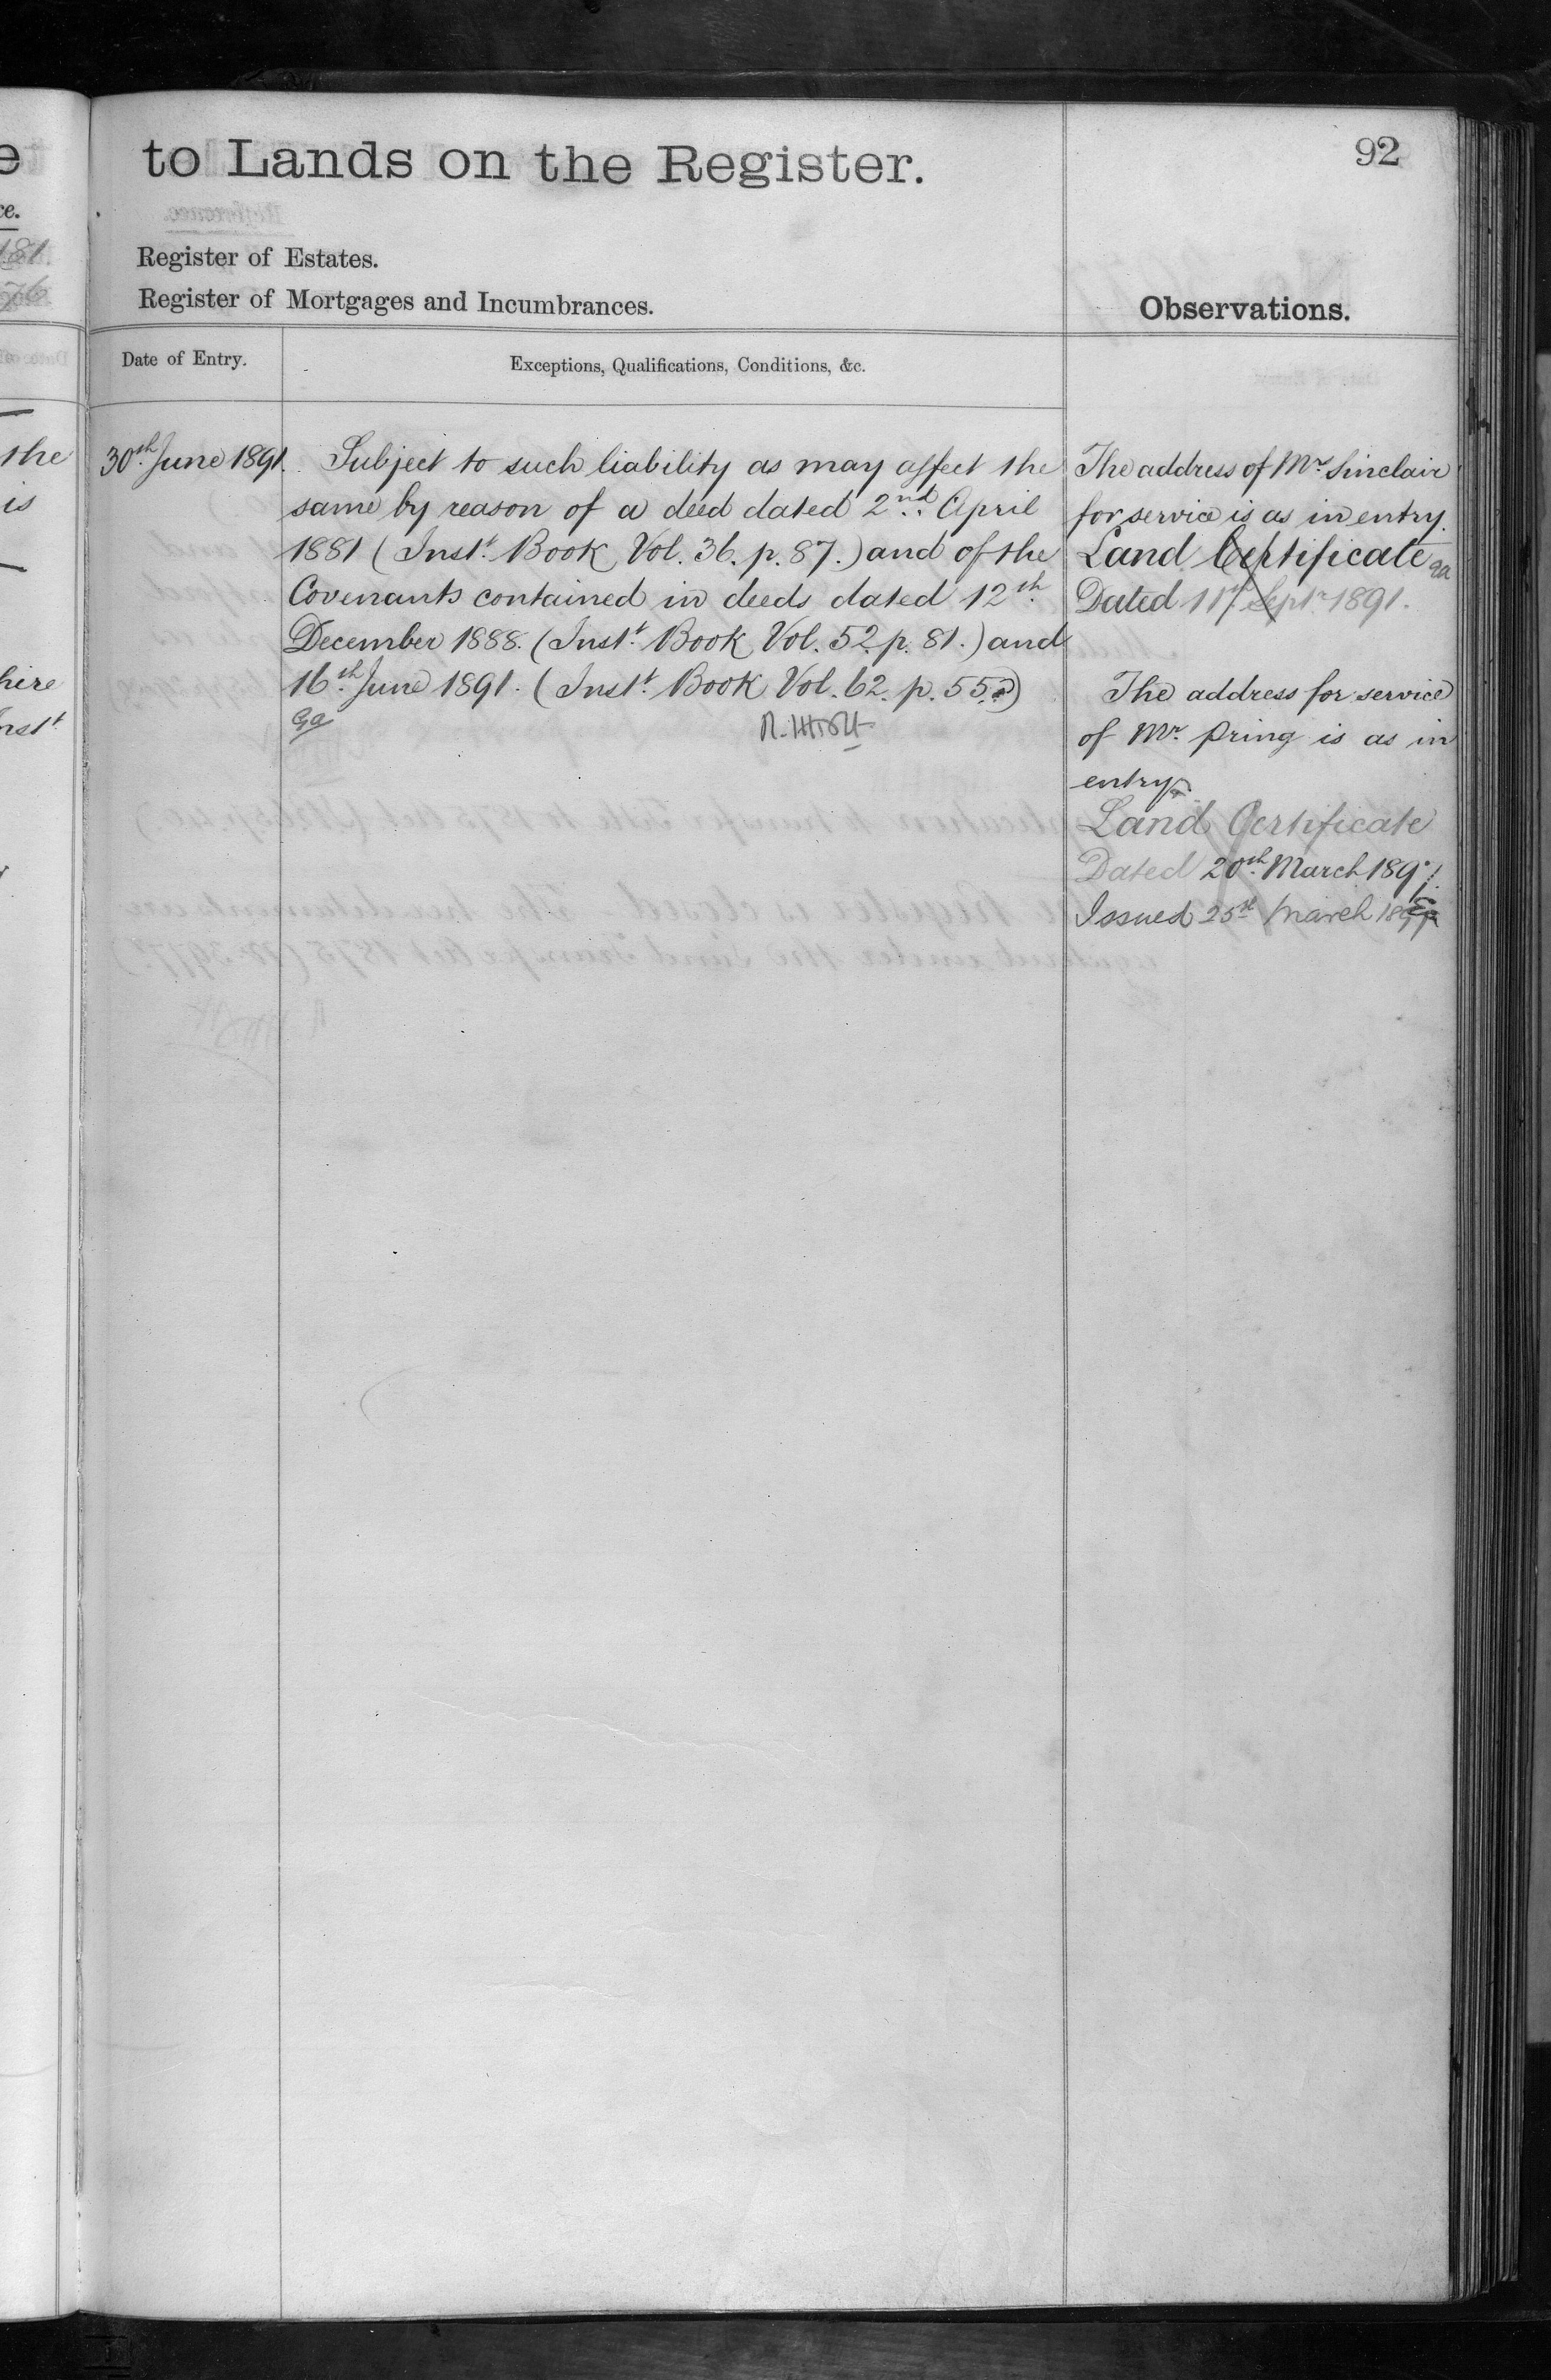 to Lands on the Register.
92
Register of Estates.
Register of Mortgages and Incumbrances.
Observations.
Date of Entry.
Exceptions, Qualifications, Conditions, &c.
30th June 1891.
Subject to such liability as may affect the
same by reason of a deed dated 2nd April
1881 (Instt. Book Vol. 36. p. 87.) and of the
Covenants contained in deeds dated 12th
December 1888. (Instt. Book Vol. 52. p. 81.) and
16th June 1891. (Instt. Book Vol. 62. p. 55.)
The address of Mr. Sinclair
for service is as in entry.
Land Certificate
Dated 11th Septr. 1891.
The address for service
of Mr. Pring is as in
entry.
Land Certificate
Dated 20th March 1897.
Issued 25th March 1897
the
is
hire
Instt
ce.
181.
76